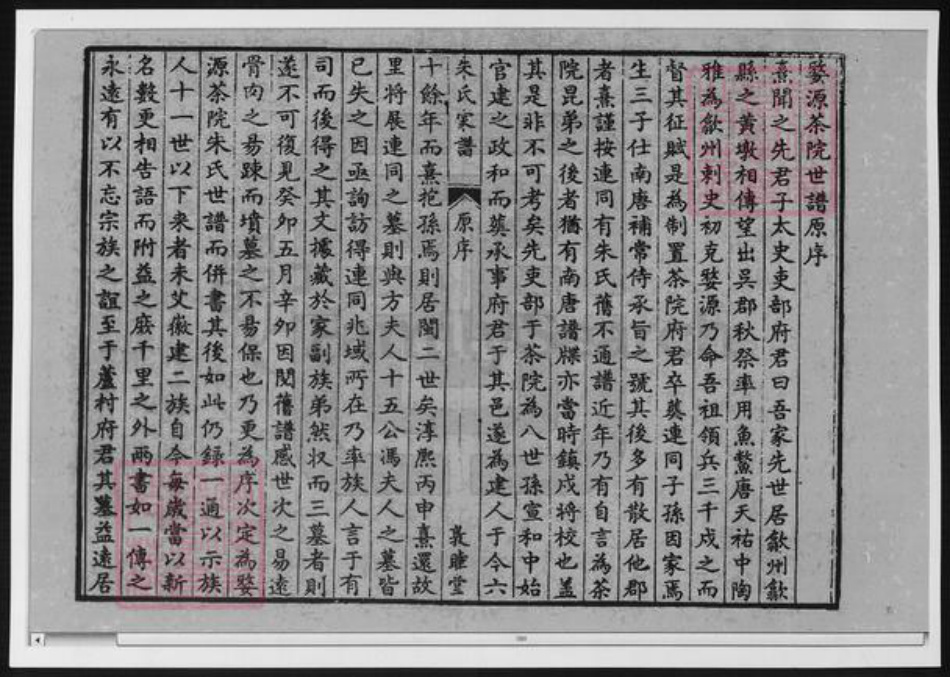 婺源茶院世譜原序
熹聞之先君子太史吏部府君曰吾家先世居歙州歙
縣之黄墩相傳望出吳郡秋祭率用魚鱉唐天祐中陶
雅為歙州刺史初克婺源乃命吾祖領兵三千戍之而
督其征賦是為制置茶院府君卒葬連同子孫因家焉
生三子仕南唐補常侍承旨之號其後多有散居他郡
者熹謹按連同有朱氏舊不通譜近年乃有自言為茶
院昆弟之後者猶有南唐譜牒亦當時鎮戍將校也蓋
其是非不可考矣先吏部于茶院為八世孫宣和中始
官建之政和而葬承事府君于其邑遂為建人于今六
朱氏家譜 原序 敦睦堂
十餘年而熹抱孫焉則居閩二世矣淳熙丙申熹還故
里將展連同之墓則與方夫人十五公馮夫人之墓皆
已失之因亟詢訪得連同兆域所在乃率族人言于有
司而後得之其文據藏於家副族弟然収而三墓者則
遂不可復見癸卯五月辛卯因閱舊譜感世次之易遠
骨肉之易踈而墳墓之不易保也乃更為序次定為婺
源茶院朱氏世譜而併書其後如此仍録一通以示族
人十一世以下来者未艾徽建二族自今每歲當以新
名數更相告語而附益之庶千里之外兩書如一傳之
永遠有以不忘宗族之誼至于蘆村府君其墓益遠居